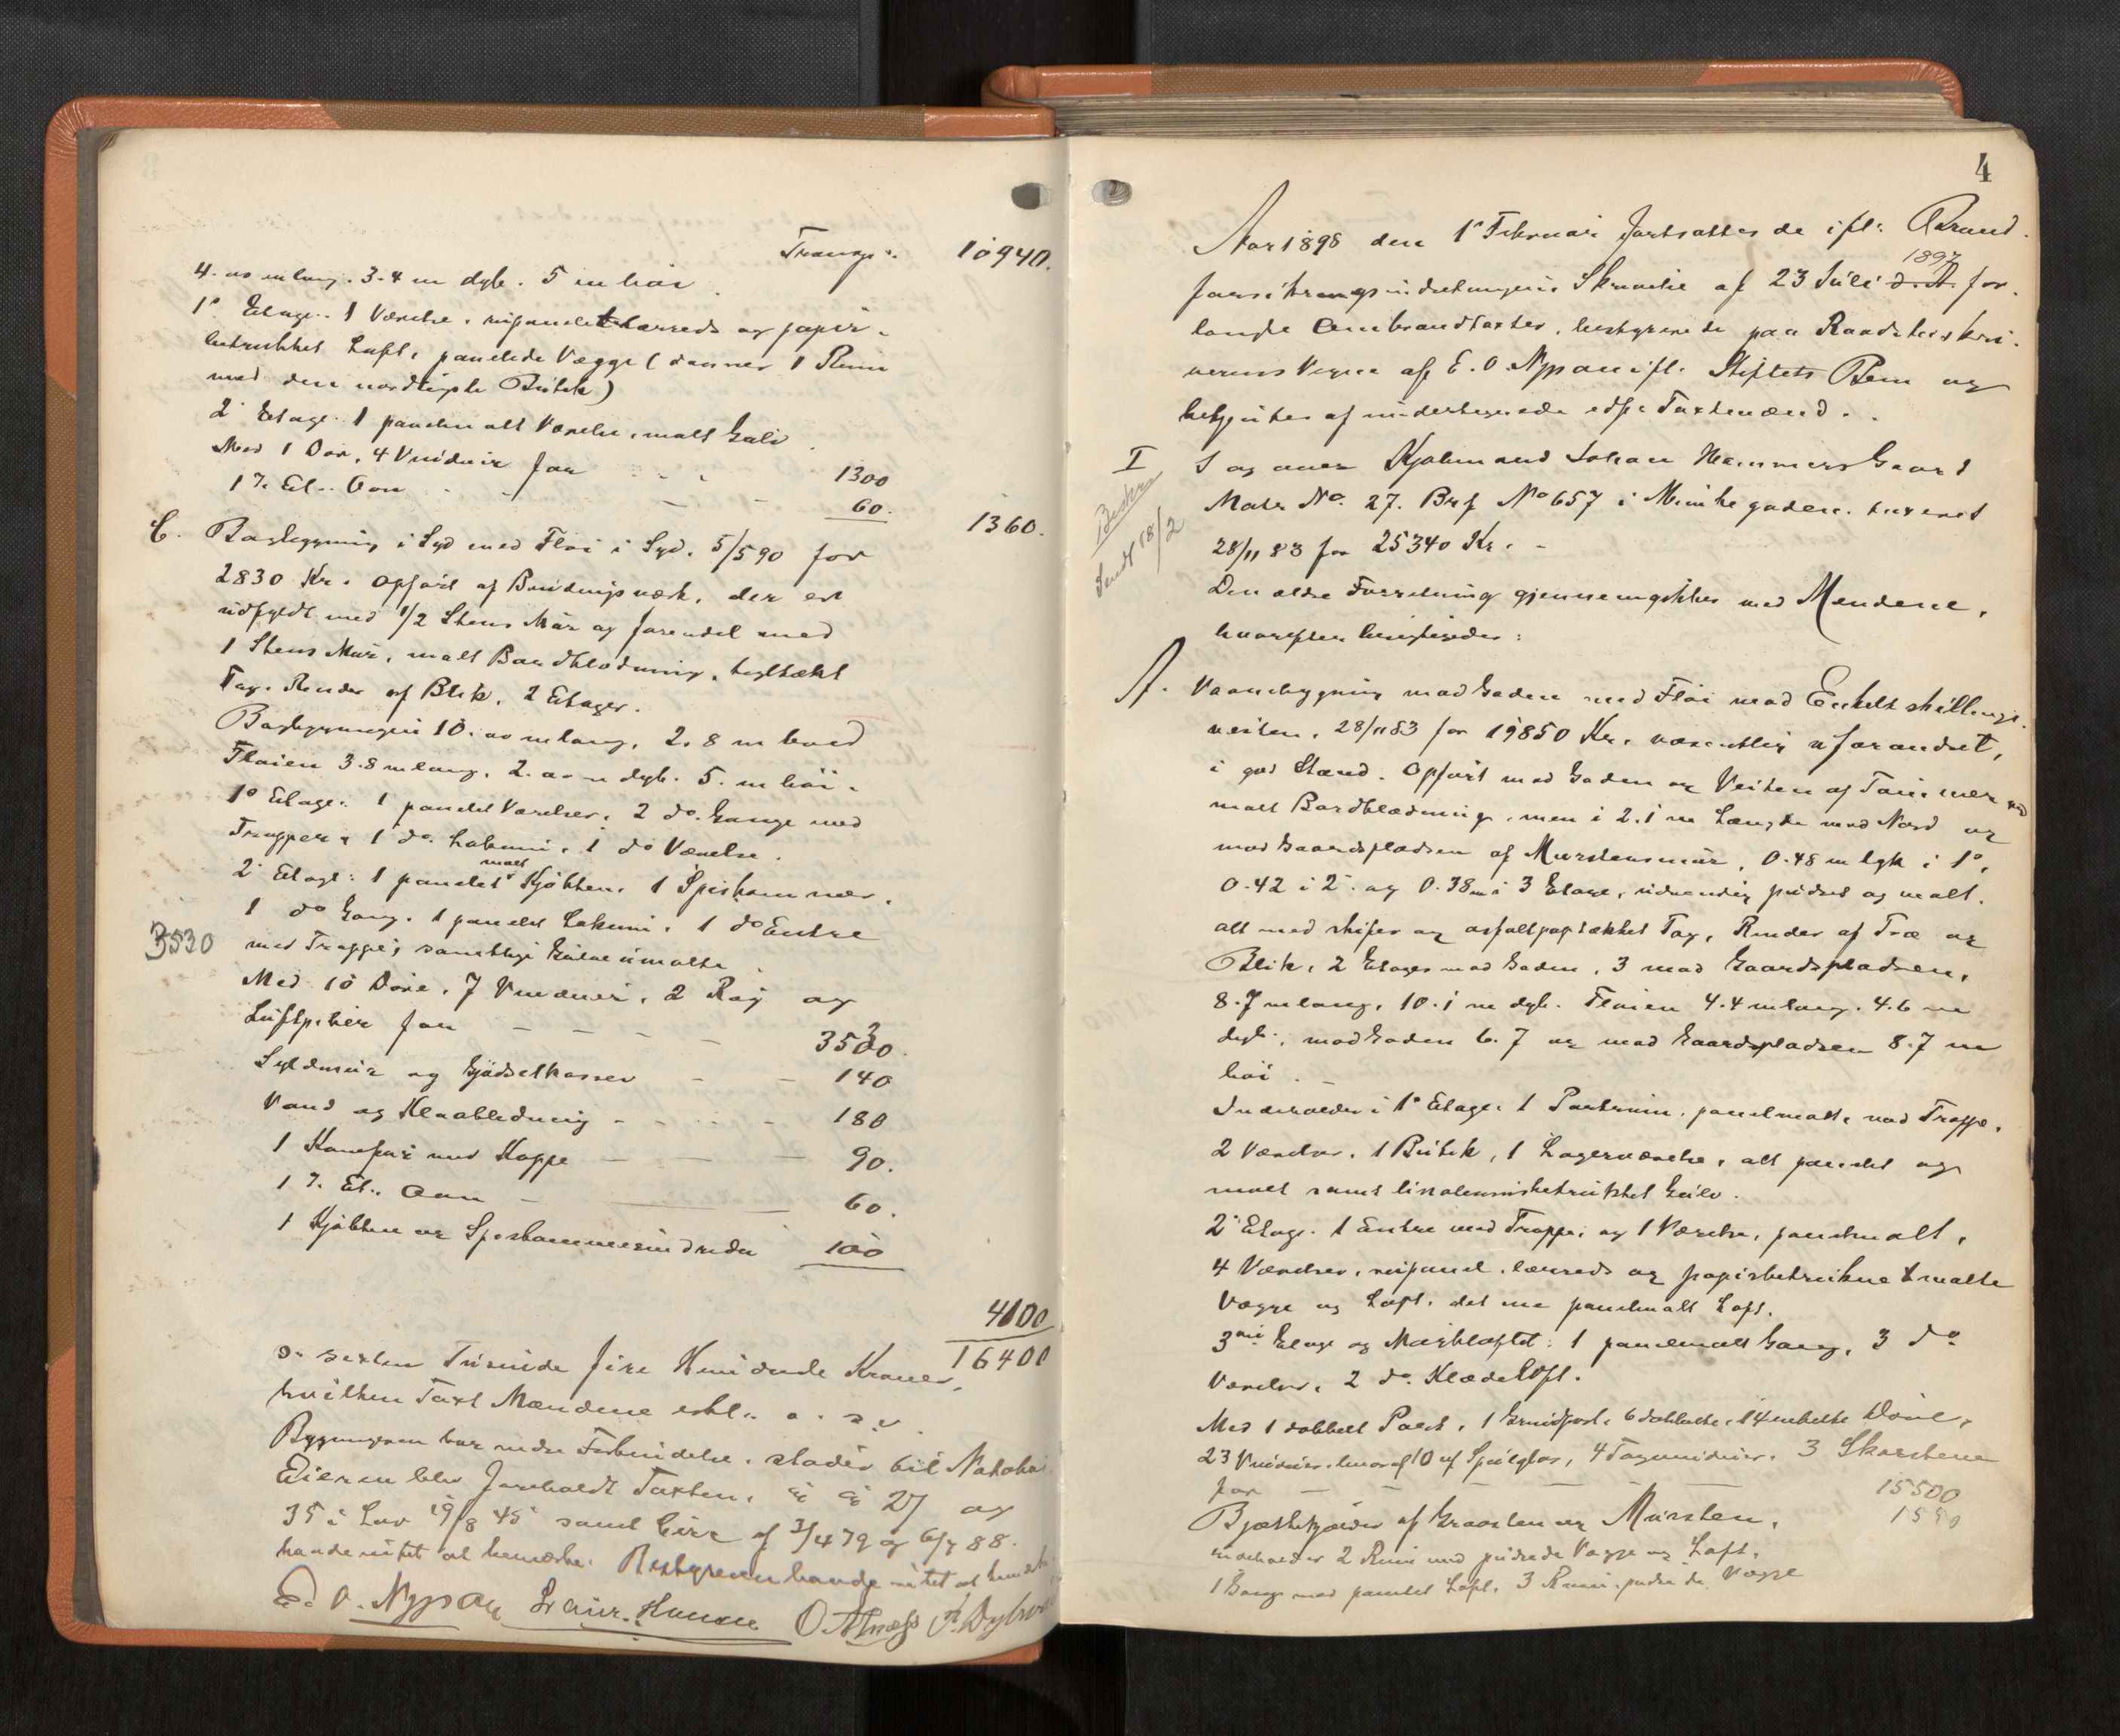 Transp:. 10940.
4. m lang. 3.4 m dyb. 5 m høi.
1ᵉ Etage. 1 Værelse, lærreds og papir-
betrukket Loft, panelede Vægge (danner 1 Rum
med den nordligste Butik)
2ᵉ Etage 1 panelmalt Værelse, malt Gulv.
Med 1 Dør, 4 Vinduer for 1300
1 7. Et. Ovn 60. 1360.
C. Bagbygning i Syd med Fløi i Syd. 5/5 90 for
2830 Kr. Opført af Bindingsværk, der er
udfyldt med 1/2 Stens Mur og forendel med
1 Stens Mur, malt Bordklædning, teglsækt
Tag. Render af Blik. 2 Etager.
Bagbygningen 10. m lang, 2.8 m bred
Fløien 3.8 m lang. 2. m dyb. 5. m høi.
1ᵉ Etage: 1 panelet Værelser. 2 do. Gange med
Trapper, 1 do. Lokum, 1 do Værelse.
2ᵉ Etage: 1 panelet malt Kjøkken, 1 Spiskammer.
1 do Gang. 1 panelet Lokum. 1 do Entre
3530 med Trappe, samtlige Gulve umalte.
Med 10 Døre, 7 Vinduer, 2 Røg og
Luftpiber for 3530.
Syldmur og Gjødselkasser 140
Vand og Kloakledning 180
1 Komfur med Kappe 90.
1 7. Et. Ovn 60.
1 Kjøkken og Spiskammerindredn 100
4100
16400
Sexten Tusinde fire Hundrede Kroner,
hvilken Taxt Mændene
Bygningen har Forbindelse, stadig til
Eieren blev foreholdt Taxten, §§ 27 og
35 i Lov 19/8 45 samt Circ af 3/4 79 og 6/7 88.
havde intet at bemærke. Bestyreren havde intet at bemærke
E. O. Nypan Laur. Hansen O. Alnæss A. Dybwad
4
Aar 1898 den 1ᵉ Februar fortsattes de ifl. Brand-
forsikringsindretningens Skrivelse af 23 Juli 1897 d. A. for-
langte Ombrandtaxter, bestyrede paa Raadstueskri-
verens Vegne af E. O. Nypan ifl. Stiftets Bem og
betjentes af undertegnede edsv. Taxtmænd.
I Sag over Kjøbmand Johan Hammers Gaard
Matr No. 27. Brf No 657 i Munkegaden, taxeret
28/11 83 for 25340 Kr.
Beskr
Sendt 18/2
Den ældre Forretning gjennemgikkes med Mændene,
hvorefter besigtigedes:
A. Vaanebygning mod Gaden med Fløi mod Enkeltskillings-
veiten, 28/11 83 for 19850 Kr. væsentlig uforandret,
i god Stand. Opført mod Gaden og Veiten af Tømmer med
malt Bordklædning, men i 2.1 m Længde mod Nord og
mod Gaardspladsen af Murstensmur, 0.48 m tyk i 1ᵉ,
0.42 i 2ᵉ og 0.38 m i 3 Etage, udvendig pudset og malt.
alt med skifer og asfaltpaptækket Tag, Render af Træ og
Blik, 2 Etager mod Gaden, 3 mod Gaardspladsen,
8.7 m lang, 10.1 m dyb. Fløien 4.4 m lang. 4.6 m
dyb, mod Gaden 6.7 og mod Gaardspladsen 8.7 m
høi.
Indeholder i 1ᵉ Etage: 1 Portrum, panelmalt, med Trappe,
2 Værelser, 1 Butik, 1 Lagerværelse, alt panelet og
malt samt linoleumsbetrukket Gulv.
2ᵉ Etage. 1 Entre med Trappe og 1 Værelse, panelmalt,
4 Værelser, rupanel. lærreds og papirbetrukne & malte
Vægge og Loft, det ene panelmalt Loft.
3die Etage og Mørkloftet: 1 panelmalt Gang, 3 do
Værelser, 2 do. Klædeloft.
Med 1 dobbelt Port, 1 Grindport, 6 dobbelte, 14 enkelte Døre,
23 Vinduer, hvoraf 10 af Speilglas, 4 Tagvinduer. 3 Skorstene
for 15500
Bjælkekjælder af Graasten og Mursten,
indeholder 2 Rum med pudsede Vægge og Loft,
1 Gang med panelet Loft, 3 Rum, pudsede Vægge